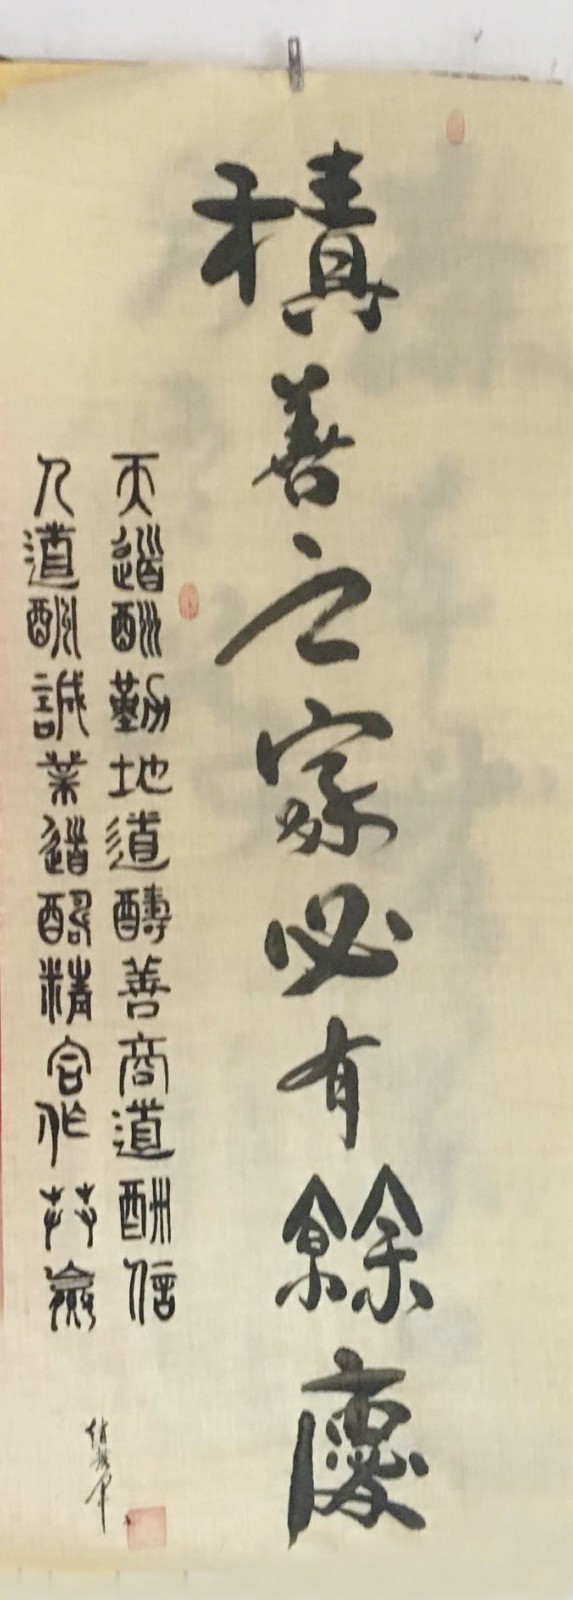 積善之家必有餘慶
天道酬勤地道酬善商道酬信
人道酬誠業道酬精合作共贏